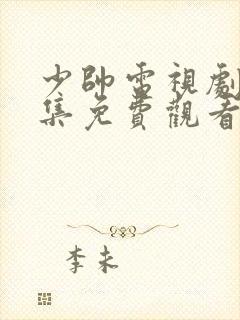 少帥電視劇
集免費觀看
李未